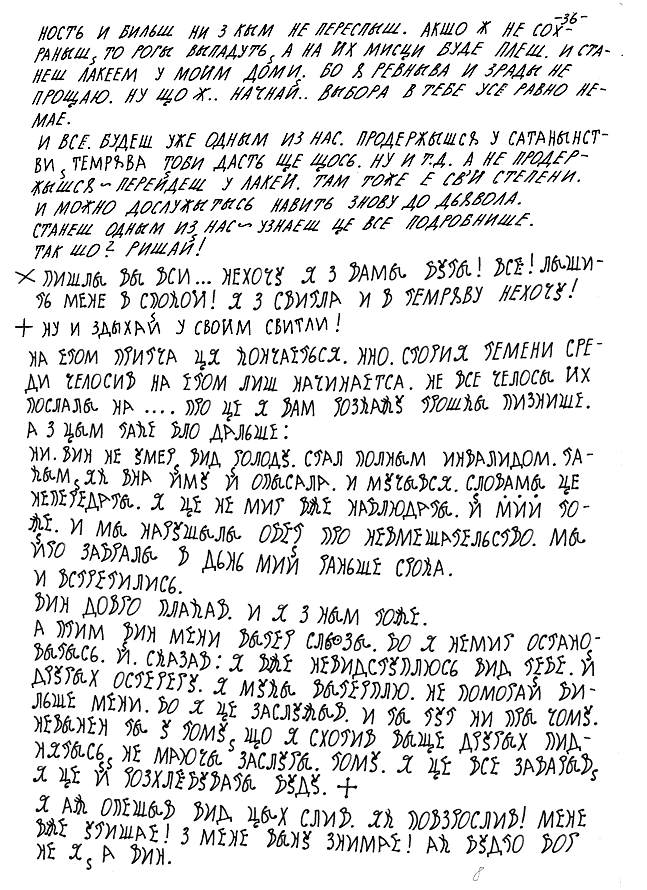 -36-
НОСТЬ И БИЛЬШ НИ З КЫМ НЕ ПЕРЕСПЫШ. АКШО Ж НЕ СОХ-
РАНЫШ, ТО РОГЫ ВЫПАДУТЬ, А НА ИХ МИСЦИ БУДЕ ПЛЕШ. И СТА-
НЕШ ЛАКЕЕМ У МОИМ ДОМИ. БО Я РЕВНЫВА И ЗРАДЫ НЕ
ПРОЩАЮ. НУ ЩО Ж.. НАЧНАЙ.. ВЫБОРА В ТЕБЕ УСЕ РАВНО НЕ-
МАЕ.
И ВСЕ. БУДЕШ УЖЕ ОДНЫМ ИЗ НАС. ПРОДЕРЖЫШСЯ У САТАНЫНСТ-
ВИ, ТЕМРЯВА ТОБИ ДАСТЬ ЩЕ ЩОСЬ. НУ И Т.Д. А НЕ ПРОДЕР-
ЖЫШСЯ ~ ПЕРЕЙДЕШ У ЛАКЕИ. ТАМ ТОЖЕ Е СВ'И СТЕПЕНИ.
И МОЖНО ДОСЛУЖЫТЫСЬ НАВИТЬ ЗНОВУ ДО ДЬЯВОЛА.
СТАНЕШ ОДНЫМ ИЗ НАС ~ УЗНАЕШ ЦЕ ВСЕ ПОДРОБНИШЕ.
ТАК ШО? РИШАЙ!
× ПИШЛЫ ВЫ ВСИ... НЕХОЧУ Я З ВАМЫ БУТЫ! ВСЕ! ЛЫШИ-
ТЬ МЕНЕ В СПОКОИ! Я З СВИТЛА И В ТЕМРЯВУ НЕХОЧУ!
+ НУ И ЗДЫХАЙ У СВОИМ СВИТЛИ!
НА ЕТОМ ПРИТЧА ЦЯ КОНЧАЕТЬСЯ. ННО. СТОРИЯ ТЕМЕНИ СРЕ-
ДИ ЧЕЛОСИВ НА ЕТОМ ЛИШ НАЧИНАЕТСА. НЕ ВСЕ ЧЕЛОСЫ ИХ
ПОСЛАЛЫ НА .... ПРО ЦЕ Я ВАМ РОЗКАЖУ ТРОШКЫ ПИЗНИШЕ.
А З ЦЫМ ТАКЕ БЛО ДАЛЬШЕ:
НИ. ВИН НЕ УМЕР, ВИД ГОЛОДУ. СТАЛ ПОЛНЫМ ИНВАЛИДОМ. ТА-
КЫМ, ЯК ВНА ИМУ Й ОПЫСАЛА. И МУЧЫВСЯ. СЛОВАМЫ ЦЕ
НЕПЕРЕДАТЫ. Я ЦЕ НЕ МИГ ВЖЕ НАБЛЮДАТЫ. Й МИЙ ТО-
ЖЕ. И МЫ НАРУШЫЛЫ ОБЕТ ПРО НЕВМЕШАТЕЛЬСТВО. МЫ
ЙГО ЗАБРАЛЫ В ДЬНЬ МИЙ РАНЬШЕ СРОКА.
И ВСТРЕТИЛИСЬ.
ВИН ДОВГО ПЛАКАВ. И Я З НЫМ ТОЖЕ.
А ПТИМ ВИН МЕНИ ВЫТЕР СЛЬОЗЫ. БО Я НЕМИГ ОСТАНО-
ВЫТЫСЬ. Й. СКАЗАВ: Я ВЖЕ НЕВИДСТУПЛЮСЬ ВИД ТЕБЕ. Й
ДРУГЫХ ОСТЕРЕГУ. Я МУКЫ ВЫТЕРПЛЮ. НЕ ПОМОГАЙ БИ-
ЛЬШЕ МЕНИ. БО Я ЦЕ ЗАСЛУЖЫВ. И ТЫ ТУТ НИ ПРЫ ЧОМУ.
НЕВЫНЕН ТЫ У ТОМУ, ЩО Я СХОТИВ ВЫЩЕ ДРУГЫХ ПИД-
НЯТЫСЬ, НЕ МАЮЧЫ ЗАСЛУГЫ. ТОМУ. Я ЦЕ ВСЕ ЗАВАРЫВ,
Я ЦЕ Й РОЗХЛЕБУВАТЫ БУДУ. +
Я АЖ ОПЕШЫВ ВИД ЦЫХ СЛИВ. ЯК ПОВЗРОСЛИВ! МЕНЕ
ВЖЕ УТИШАЕ! З МЕНЕ ВЫНУ ЗНИМАЕ! АК БУДТО БОГ
НЕ Я, А ВИН.
8